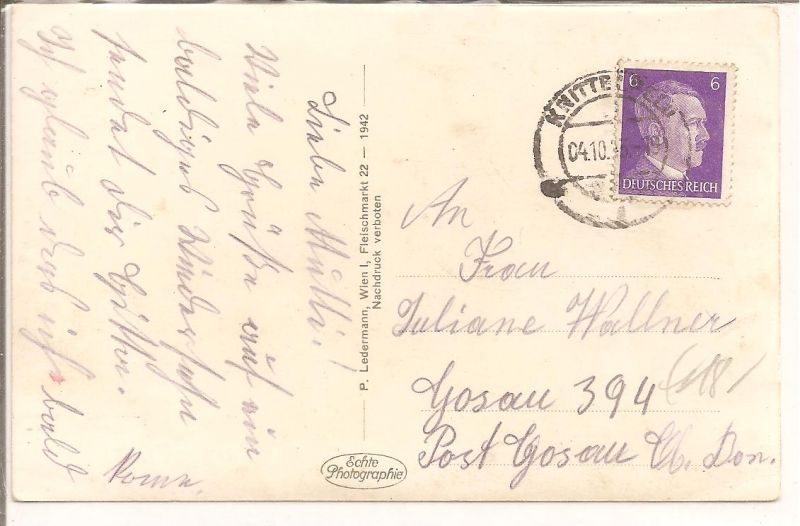 Liebe Mutti!
Viele Grüße und ein
baldiges Wiedersehn
sendet dir
Ich glaub das ich bald
komm.
P. Ledermann, Wien I, Fleischmarkt 22 — 1942
Nachdruck verboten
Echte
Photographie
KNITTELFELD
04.10.
6 6
DEUTSCHES REICH
An
Frau
Juliane Wallner
Gosau 394 (118)
Post Gosau Ob. Don.